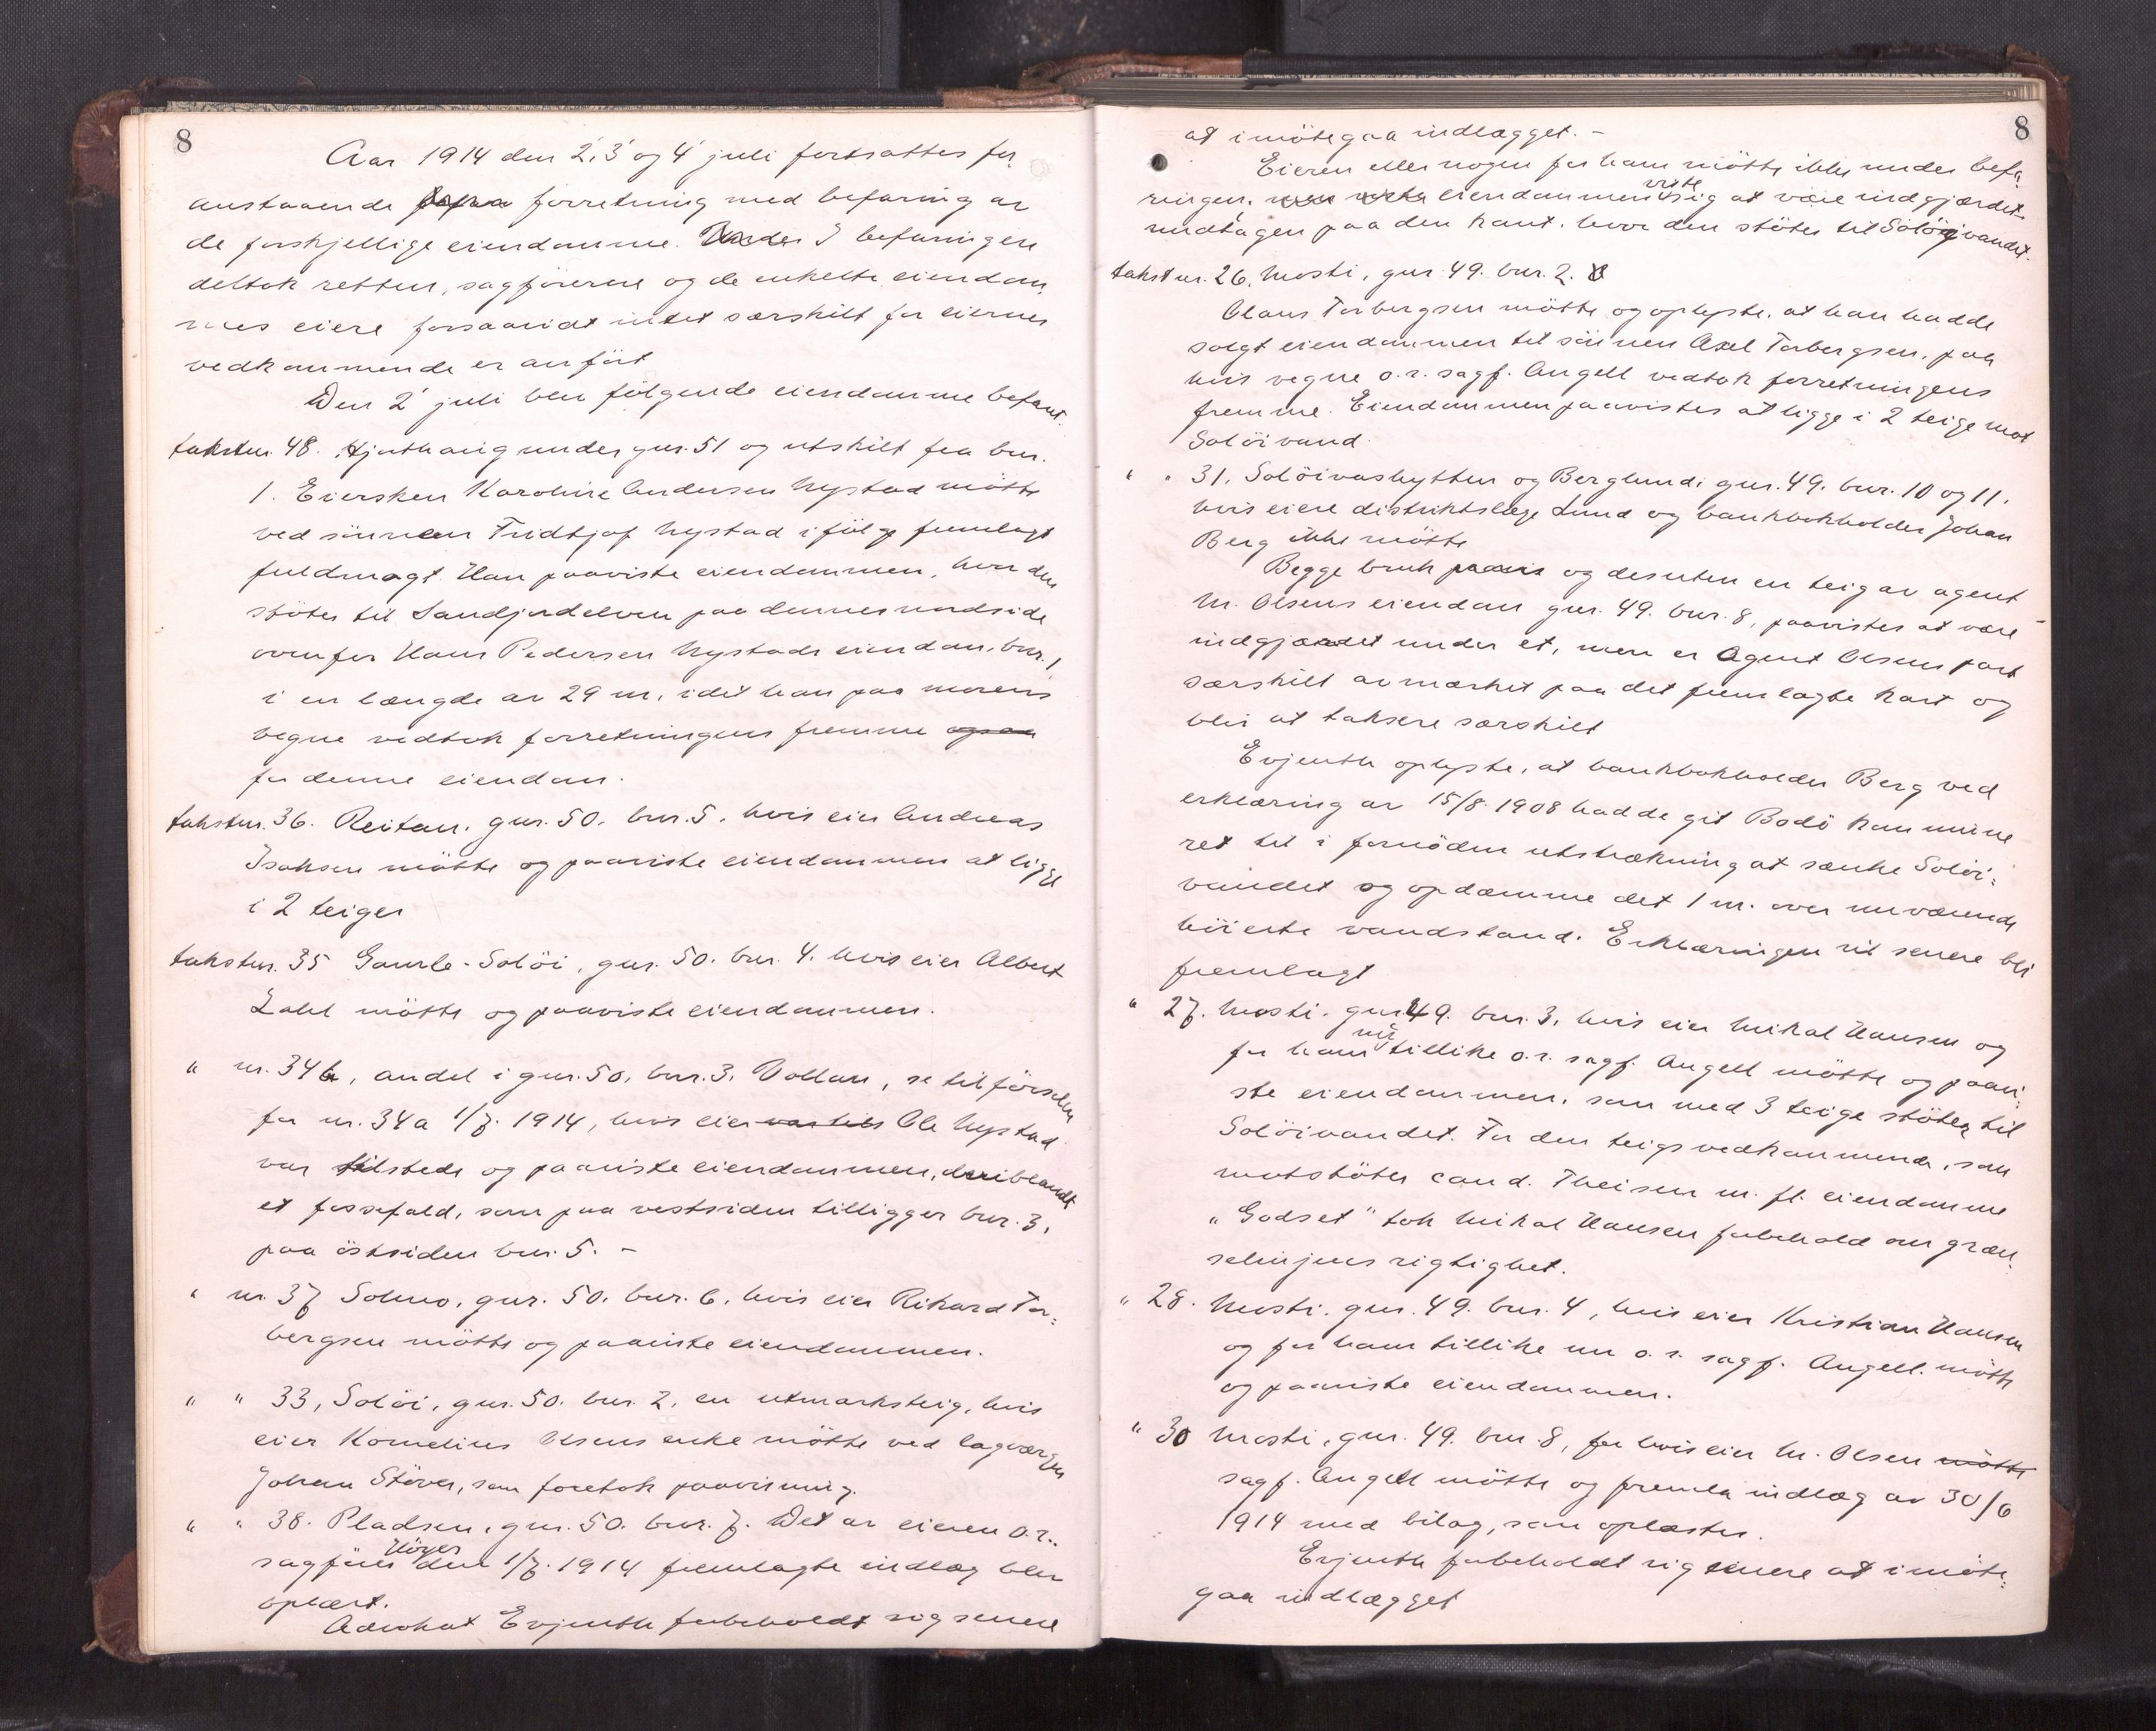 8
Aar 1914 den 2', 3' og 4' juli fortsattes for,
anstaaende forretning med befaring av
de forskjellige eiendomme. Under I befaringen
deltok retten, sagförerne og de enkelte eiendom,
mes eiere forsaavidt intet særskilt for eiernes
vedkommende er anfört
Den 2' juli blev fölgende eiendomme befart.
takstnr. 48. Hjorthaug under gnr. 51 og utskilt fra bnr.
1. Eiersken Karoline Andersen Nystad mötte
ved sönnen Fridtjof Nystad ifölge fremlagt
fuldmagt. Han paaviste eiendommen, hvor den
stöter til Sandjordelven paa dennes nordside
ovenfor Hans Pedersen Nystads eiendom, bnr. 1
i en længde av 29 m, idet han paa morens
vegne vedtok forretningens fremme ogsaa
for denne eiendom.
takstnr. 36. Reitan, gnr. 50. bnr. 5. hvis eier Andreas
Isaksen mötte og paaviste eiendommen at ligge
i 2 teiger
takstnr. 35 Gamle-Solöi, gnr. 50. bnr. 4. hvis eier Albert
Zahl mötte og paaviste eiendommen.
" nr. 34b, andel i gnr. 50. bnr. 3. Vollan, se tilförselen
for nr. 34a 1/7. 1914, hvis eier var tils Ole Nystad
var tilstede og paaviste eiendommen, deriblandt
et fossefald, som paa vestsiden tilligger bnr. 3,
paa östsiden bnr. 5. -
" nr. 37 Solmo, gnr. 50. bnr. 6. hvis eier Rikard Tor,
bergsen mötte og paaviste eiendommen.
" " 33, Solöi, gnr. 50. bnr. 2, en utmarksteig, hvis
eier Kornelius Olsens enke mötte ved lagværgen
Johan Stöver, som foretok paavisning.
" " 38. Pladsen, gnr. 50. bnr. 7. Det av eieren o.r.
sagförer Höyer den 1/7. 1914 fremlagte indlæg blev
oplæst.
Advokat Evjenth forbeholdt sig senere
8
at imötegaa indlægget. -
Eieren eller nogen for ham mötte ikke under befa,
ringen. eiendommen viste sig at være indgjærdet
undtagen paa den kant. hvor den stöter til Solöivandet.
takst nr. 26, Mosti, gnr. 49. bnr. 2.
Olaus Torbergsen mötte og oplyste, at han hadde
solgt eiendommen til sönnen Axel Torbergsen, paa
hvis vegne o.r. sagf. Angell vedtok forretningens
fremme. Eiendommen paavistes at ligge i 2 teige mot
Solöivand.
" " 31, Solöivashytten og Berglund, gnr. 49. bnr. 10 og 11.
hvis eiere distriktslæge Lund og bankbokholder Johan
Berg ikke mötte
Begge bruk paavis og desuten en teig av agent
M. Olsens eiendom gnr. 49. bnr. 8, paavistes at være
indgjærdet under et, men er Agent Olsens part
særskilt avmærket paa det fremlagte kart og
blir at taksere særskilt
Evjenth oplyste, at bankbokholder Berg ved
erklæring av 15/8. 1908 hadde git Bodö kommune
ret til i fornöden utstrækning at sænke Solöi,
vandet og opdæmme det 1 m. over nuværende
höieste vandstand. Erklæringen vil senere bli
fremlagt
" 27. Mosti. gnr. 49. bnr. 3, hvis eier Mikal Hansen og
for ham nu tillike o.r. sagf. Angell mötte og paavi,
ste eiendommen, som med 3 teige stöter til
Solöivandet. For den teigs vedkommende, som
motstöter cand. Theisen m. fl. eiendomme
"Godset" tok Mikal Hansen forbehold om græn,
selinjens rigtighet.
" 28. Mosti. gnr. 49. bnr. 4, hvis eier Kristian Hansen
og for ham tillike nu o.r. sagf. Angell mötte
og paaviste eiendommen.
" 30 Mosti, gnr. 49. bnr. 8, for hvis eier M. Olsen mötte
sagf. Angell mötte og fremla indlæg av 30/6
1914 med bilag, som oplæstes.
Evjenth forbeholdt sig senere at imöte,
gaa indlægget